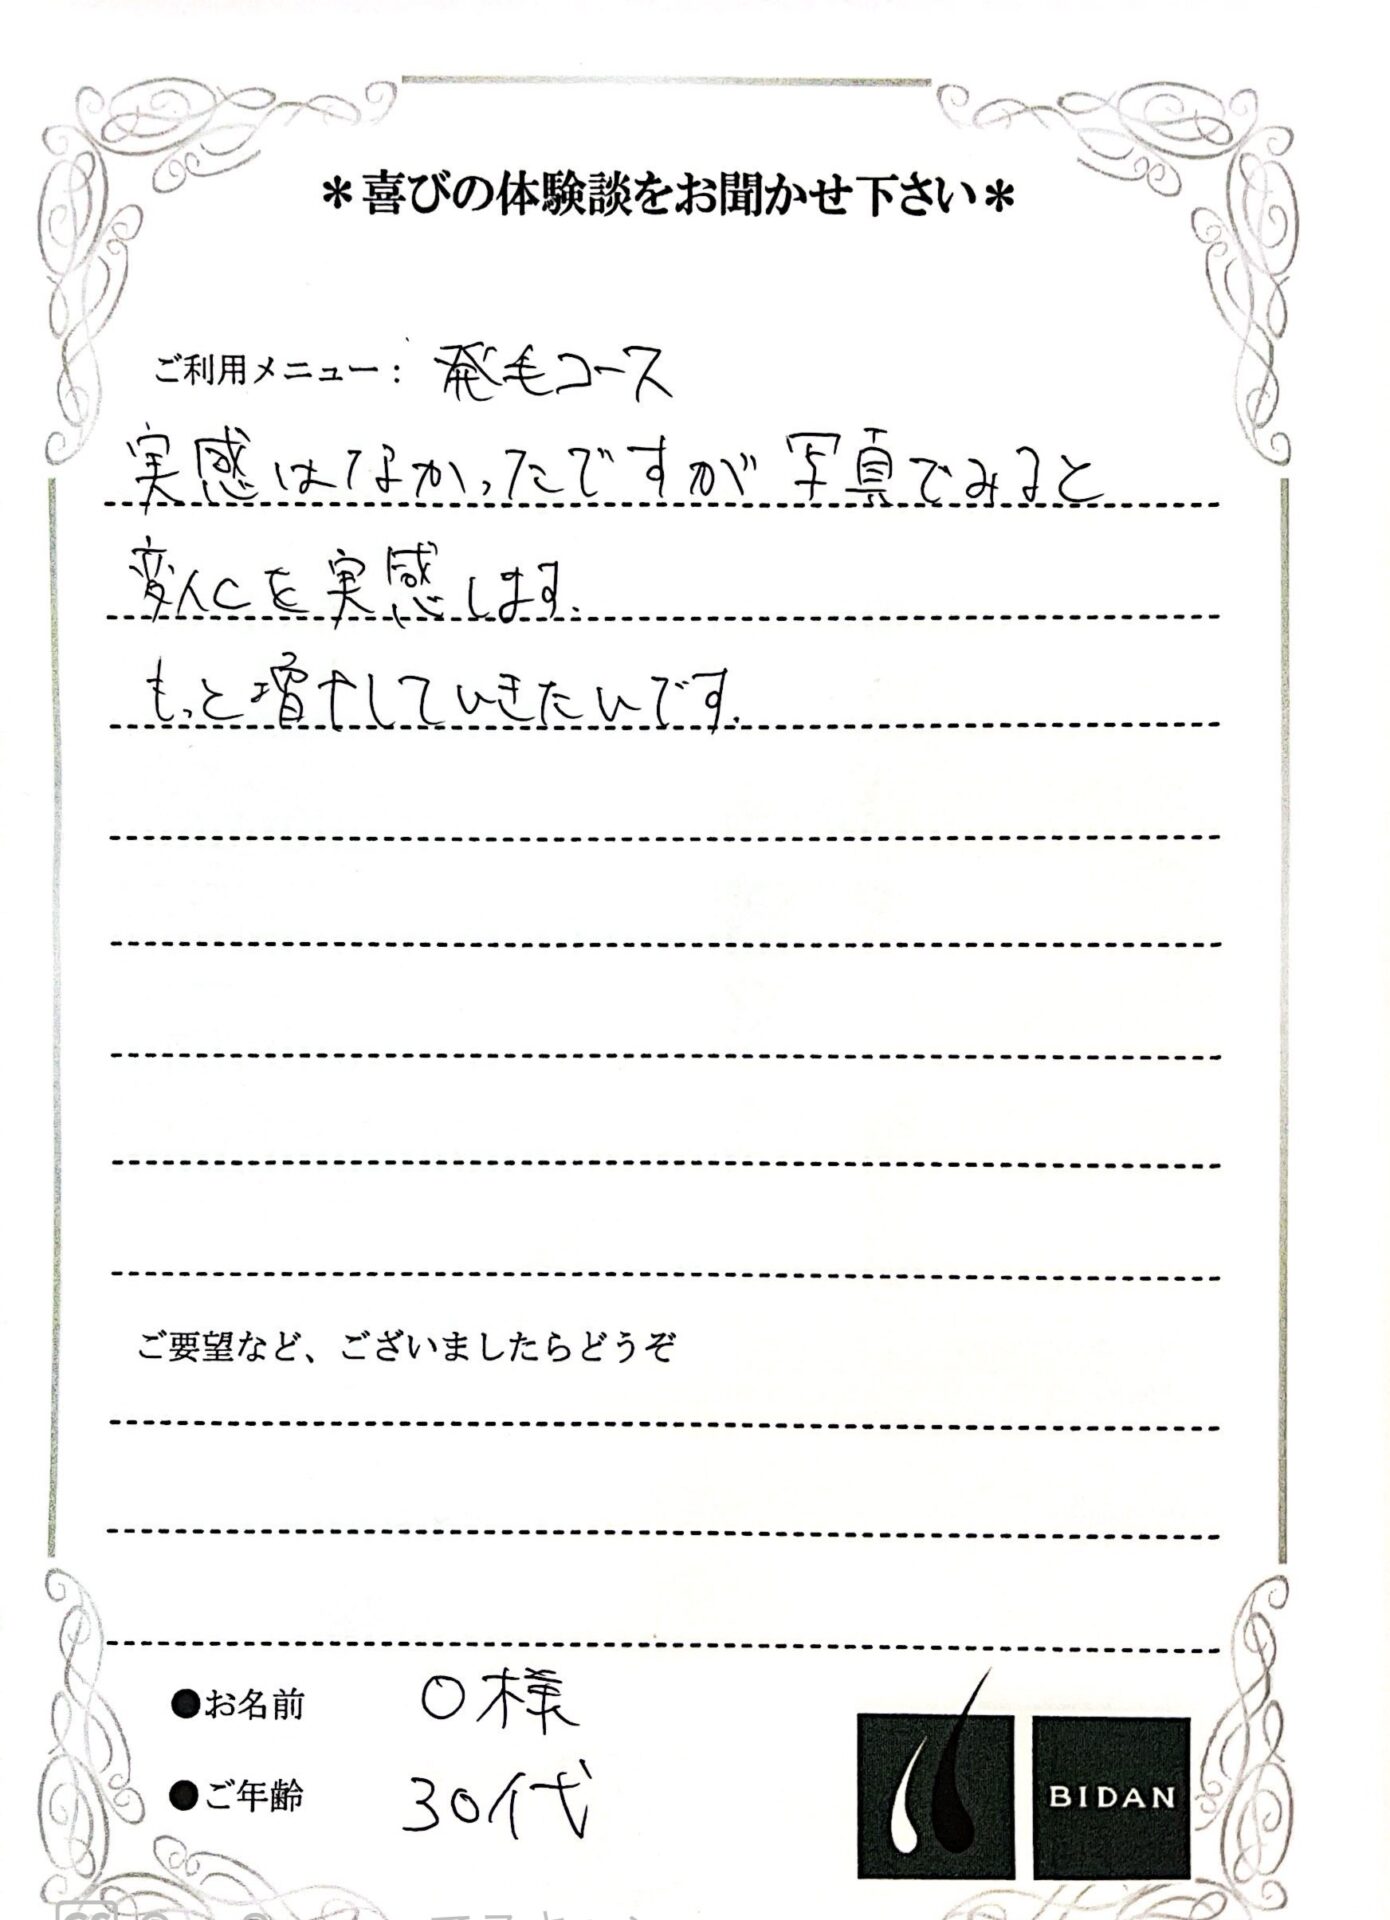 ＊喜びの体験談をお聞かせ下さい＊
ご利用メニュー： 発毛コース
実感はなかったですが写真でみると
変化を実感します.
もっと増やしていきたいです.
ご要望など、ございましたらどうぞ
●お名前 O様
●ご年齢 30代
BIDAN